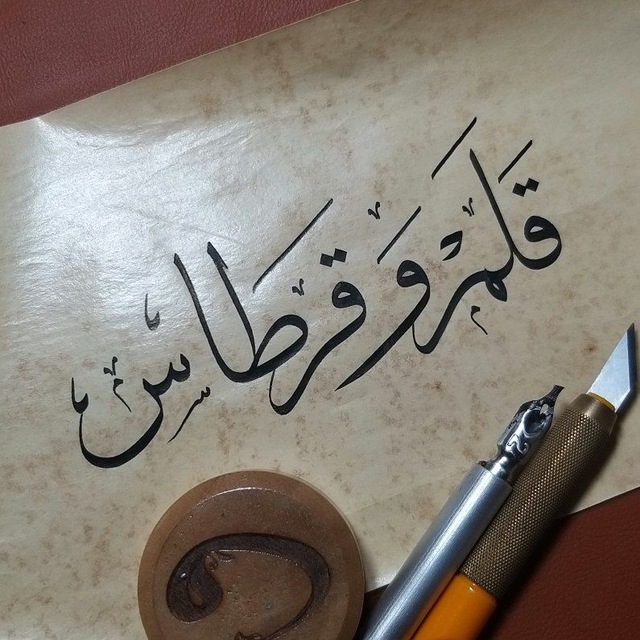 قلم و قرطاس